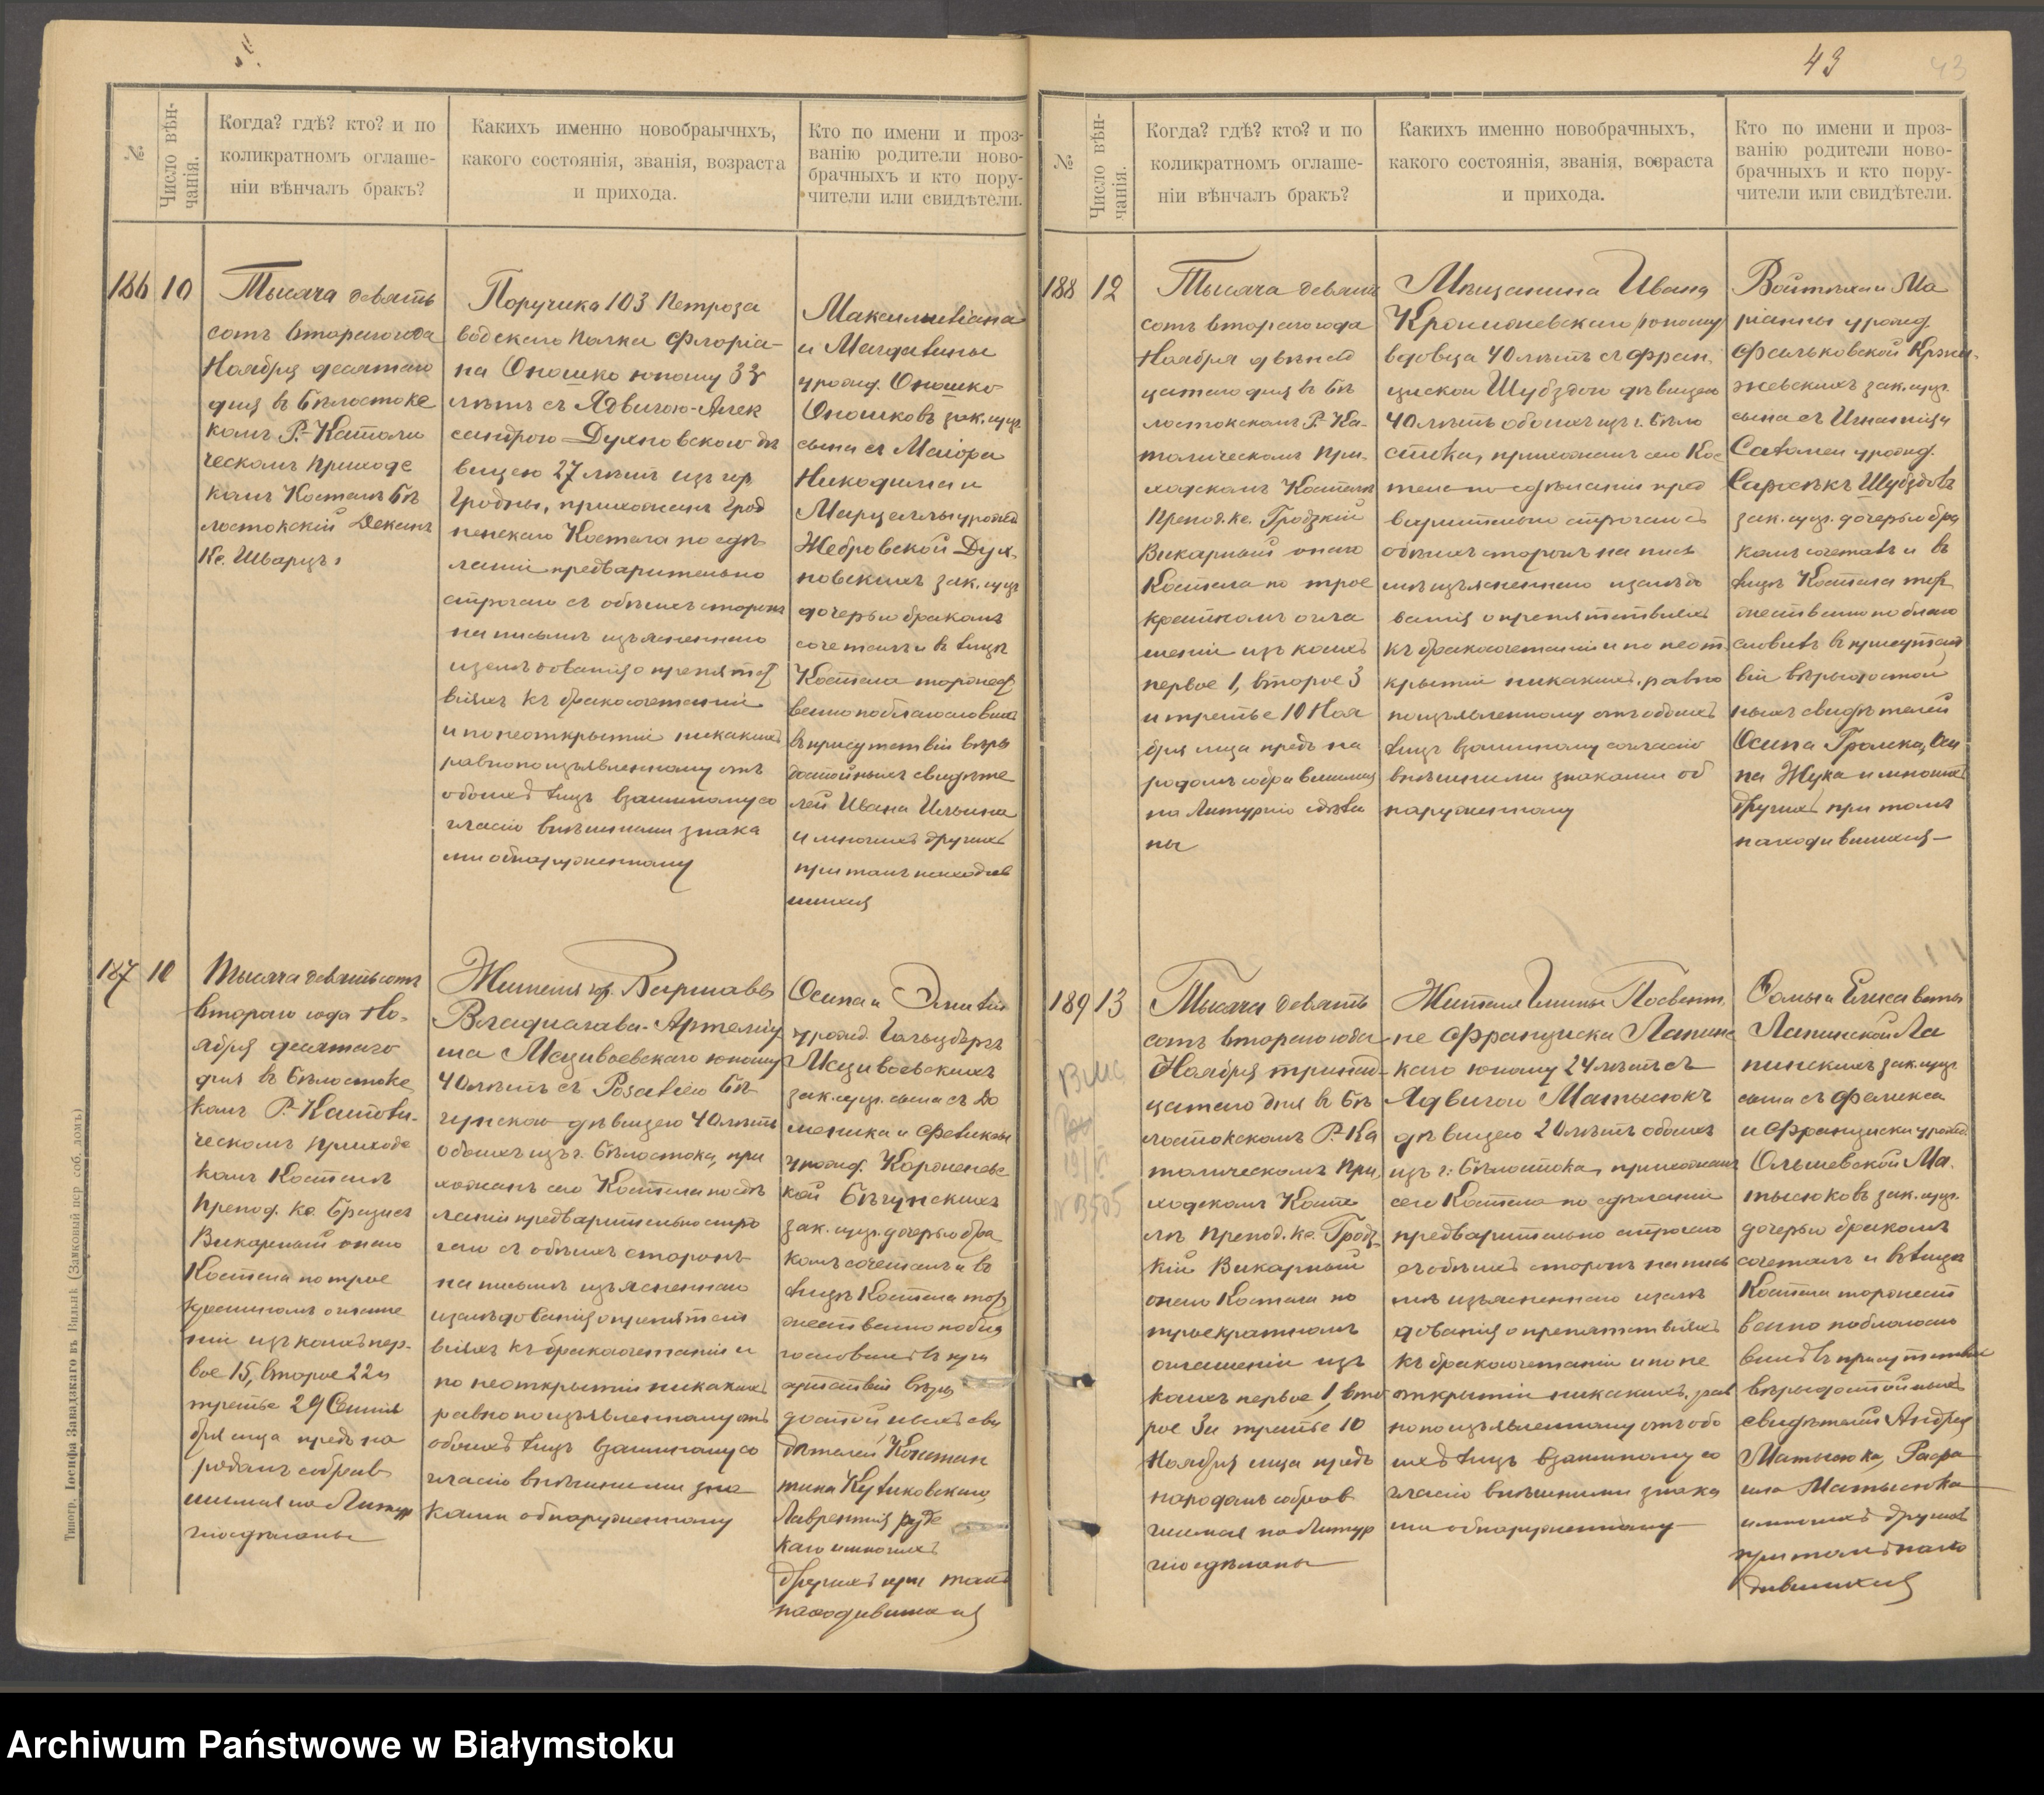 43
43
№
Число вѣн-
чанія.
Когда? гдѣ? кто? и по
коликратномъ оглаше-
ніи вѣнчалъ бракъ?
Какихъ именно новобраычнхъ,
какого состоянія, званія, возраста
и прихода.
Кто по имени и проз-
ванію родители ново-
брачныхъ и кто пору-
чители или свидѣтели.
186
10
Тысяча девять
сотъ втораго года
Ноября десятаго
дня въ Бѣлостоке
комъ Р.-Католи
ческомъ приходс
комъ Костелѣ Бѣ
лостокскій Деканъ
Кс. Шварцъ
Поручика 103 Петроза
водскаго полка Флоріа-
на Оношко юношу 33
лѣтъ съ Ядвигою-Алек
сандрою Духновскою дѣ
вицею 27 лѣтъ изъ гор.
Гродны, прихожанъ Грод
ненскаго Костела по сдѣ
ланіи предварительно
строгаго съ обѣихъ сторонъ
на письмѣ изъясненнаго
изслѣдованія о препятст
віяхъ къ бракосочетанію
и по неоткрытіи никакихъ
равно по изъявленному отъ
обоихъ лицъ взаимному со
гласію внѣшними знака
ми обнаруженному
Максимиліана
и Магдалины
урожд. Оношко
Оношковъ зак. суп.
сына съ Маіора
Никодима и
Марцеллы урожд
Жебровской Дух-
новскихъ зак. суп
дочерью бракомъ
сочеталъ и въ лицѣ
Костела торжест
венно поблагословилъ
въ присутствіи вѣры
достойныхъ свидѣте
лей Ивана Ильина
и многихъ другихъ
при томъ находив
шихся
187
10
Тысяча девятьсотъ
втораго года Но-
ября десятаго
дня въ Бѣлостоке
комъ Р.-Католи-
ческомъ приходс
комъ Костелѣ
Препод. Кс.
Викарный онаго
Костела по трое
кратномъ оглаше
ніи изъ коихъ пер-
вое 15, второе 22 и
третье 29 Сентя
бря сего предъ на
родомъ собрав
шимся на Литур
гію сдѣланы
Жителя гор. Варшавы
Владислава-Артемія
40 лѣтъ съ Розалією Бѣ
гунскою дѣвицею 40 лѣтъ
обоихъ изъ г. Бѣлостока, при
хожанъ сего Костела по сдѣ
ланіи предварительно стро
гаго съ обѣихъ сторонъ
на письмѣ изъясненнаго
изслѣдованія о препятст
віяхъ къ бракосочетанію и
по неоткрытіи никакихъ
равно по изъявленному отъ
обоихъ лицъ взаимному со
гласію внѣшними зна
ками обнаруженному
Осипа и Эмиліи
урожд. Гольцбергъ
зак. суп. сына съ До
миника и Феликсы
урожд. Короневс
кой Бѣгунскихъ
зак. суп. дочерью бра
комъ сочеталъ и въ
лицѣ Костела тор
жественно побла
гословилъ въ при
сутствіи вѣры
достойныхъ сви
дѣтелей Констан
тина Куликовскаго,
Лаврентія
каго и многихъ
другихъ при томъ
находившихся
Типогр. Іосифа Завадзкаго въ Вильнѣ (Замковый пер. соб. домъ)
№
Число вѣн-
чанія.
Когда? гдѣ? кто? и по
коликратномъ оглаше-
ніи вѣнчалъ бракъ?
Какихъ именно новобрачныхъ,
какого состоянія, званія, возраста
и прихода.
Кто по имени и проз-
ванію родители ново-
брачныхъ и кто пору-
чители или свидѣтели.
188
12
Тысяча девять
сотъ втораго года
Ноября двѣнад
цатаго дня въ Бѣ
лостокскомъ Р.-Ка-
толическомъ При-
ходскомъ Костелѣ
Препод. Кс. Гродзкій
Викарный онаго
Костела по трое
кратномъ огла
шеніи изъ коихъ
первое 1, второе 3
и третье 10 Ноя
бря сего предъ на
родомъ собравшимся
на Литургію сдѣла
ны
Мѣщанина Ивана
вдовца 40 лѣтъ съ Фран-
цискою Шубздою дѣвицею
40 лѣтъ обоихъ изъ г. Бѣло
стока, прихожанъ сего Кос
тела по сдѣланіи пред
варительно строгаго съ
обѣихъ сторонъ на пись
мѣ изъясненнаго изслѣдо
ванія о препятствіяхъ
къ бракосочетанію и по неот
крытіи никакихъ, равно
по изъявленному отъ обоихъ
лицъ взаимному согласію
внѣшними знаками об
наруженному
Войтѣха и Ма
ріанны урожд.
Фальковской
зак. суп.
сына съ Игнатія и
Саломеи урожд.
Саросѣкъ Шубздовъ
зак. суп. дочерью бра
комъ сочеталъ и въ
лицѣ Костела тор
жественно поблаго
словилъ въ присутст
віи вѣры достой
ныхъ свидѣтелей
Осипа Громка, Оси
па Жука и многихъ
другихъ при томъ
находившихся
189
13
Тысяча девять
сотъ втораго года
Ноября тринад-
цатаго дня въ Бѣ
лостокскомъ Р.-Ка
толическомъ При-
ходскомъ Косте
лѣ Препод. Кс. Гродз-
кій Викарный
онаго Костела по
троекратномъ
оглашеніи изъ
коихъ первое 1, вто
рое 3 и третье 10
Ноября сего предъ
народомъ собрав
шимся на Литур
гію сдѣланы
Жителя Гмины
Франциска Лапинс
каго юношу 24 лѣтъ съ
Ядвигою Матысюкъ
дѣвицею 20 лѣтъ обоихъ
изъ г. Бѣлостока, прихожанъ
сего Костела по сдѣланіи
предварительно строгаго
съ обѣихъ сторонъ на пись
мѣ изъясненнаго изслѣ
дованія о препятствіяхъ
къ бракосочетанію и по не
открытіи никакихъ, рав
но по изъявленному отъ обо
ихъ лицъ взаимному со
гласію внѣшними знака
ми обнаруженному
Ѳомы и Елисаветы
Лапинской Ла
пинскихъ зак. суп.
сына съ Феликса
и Франциски урожд.
Ольшевской Ма-
тысюковъ зак. суп.
дочерью бракомъ
сочеталъ и въ лицѣ
Костела торжест
венно поблагосло
вилъ въ присутствіи
вѣры достойныхъ
свидѣтелей Андрея
Матысюка, Рафа
ила Матысюка
и многихъ другихъ
при томъ нахо
дившихся
Archiwum Państwowe w Białymstoku